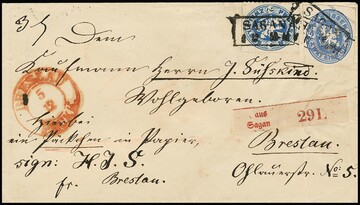 3/
Dem
SAGAN
Kaufmann Herrn J. Süskind.
Wohlgeboren.
Hierbei
ein Päckchen in Papier,
aus
Sagan
291.
sign: H. J. S.
Breslau.
fr. Breslau.
Ohlauerstr. No: 5.